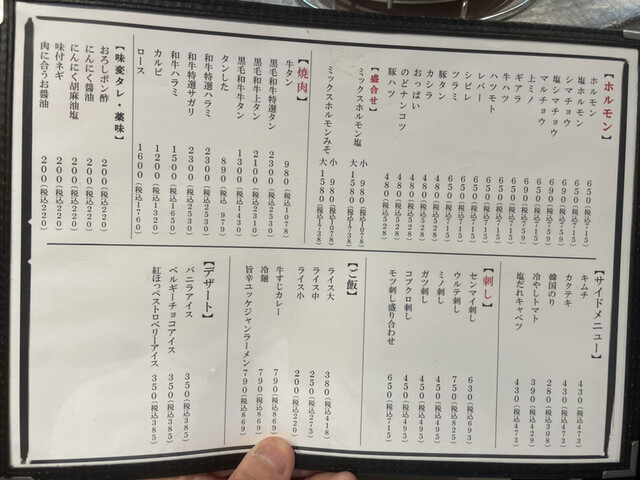 【ホルモン】
ホルモン 650(税込715)
塩ホルモン 650(税込715)
シマチョウ
塩シマチョウ
マルチョウ
上ミノ
ギアラ
牛ハツ
ハツモト
レバー
シビレ
ツラミ
豚タン
カシラ 480(税込528)
おっぱい 480(税込528)
のどナンコツ 480(税込528)
豚ハツ 480(税込528)
【盛合せ】
ミックスホルモン塩 小 980(税込1078)
大 1580(税込1738)
ミックスホルモンみそ 小 980(税込1078)
大 1580(税込1738)
【焼肉】
牛タン 980(税込1078)
黒毛和牛特選タン 2300(税込2530)
黒毛和牛上タン 2100(税込2310)
黒毛和牛牛タン 1300(税込1430)
タンした 890(税込979)
和牛特選ハラミ 2300(税込2530)
和牛特選サガリ 2300(税込2530)
和牛ハラミ 1500(税込1650)
カルビ 1200(税込1320)
ロース 1600(税込1760)
【味変タレ・薬味】
おろしポン酢 200(税込220)
にんにく醤油 200(税込220)
にんにく胡麻油塩 200(税込220)
味付ネギ 200(税込220)
肉に合うお醤油 200(税込220)
【サイドメニュー】
キムチ 430(税込473)
カクテキ 430(税込473)
韓国のり 280(税込308)
冷やしトマト 390(税込429)
塩だれキャベツ 430(税込473)
【刺し】
センマイ刺し 630(税込693)
ウルテ刺し 750(税込825)
ミノ刺し 450(税込495)
ガツ刺し 450(税込495)
コブクロ刺し 450(税込495)
モツ刺し盛り合わせ 650(税込715)
【ご飯】
ライス大 380(税込418)
ライス中 250(税込275)
ライス小 200(税込220)
牛すじカレー 790(税込869)
冷麺 790(税込869)
旨辛ユッケジャンラーメン 790(税込869)
【デザート】
バニラアイス 350(税込385)
ベルギーチョコアイス 350(税込385)
紅ほっぺストロベリーアイス 350(税込385)